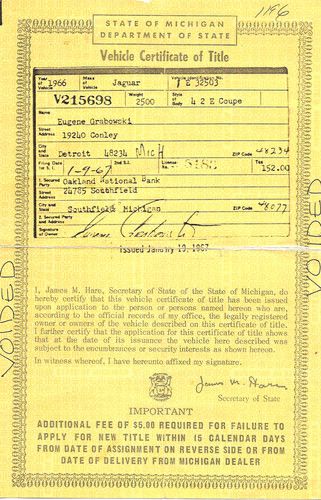 1196
STATE OF MICHIGAN
DEPARTMENT OF STATE
Vehicle Certificate of Title
Year of Vehicle 1966 Make of Vehicle Jaguar Vehicle Identification No. 1 E 32503
V215698 Weight 2500 Style of Body 4 2 E Coupe
Name Eugene Grabowski
Street Address 19240 Conley
City and State Detroit 48234 MICH ZIP Code 48234
Filing Date 1st S.I. 1-9-67 License No. Tax 152.00
1. Secured Party Oakland National Bank
Street Address 24785 Southfield
City and State Southfield Michigan ZIP Code 48077
2. Secured Party and Address
Signature of Owner
Issued January 19, 1967
I, James M. Hare, Secretary of State of the State of Michigan, do
hereby certify that this vehicle certificate of title has been issued
upon application to the person or persons named hereon who are,
according to the official records of my office, the legally registered
owner or owners of the vehicle described on this certificate of title.
I further certify that the application for this certificate of title shows
that at the date of its issuance the vehicle here described was
subject to the encumbrances or security interests as shown hereon.
In witness whereof, I have hereunto affixed my signature.
James M. Hare
Secretary of State
IMPORTANT
ADDITIONAL FEE OF $5.00 REQUIRED FOR FAILURE TO
APPLY FOR NEW TITLE WITHIN 15 CALENDAR DAYS
FROM DATE OF ASSIGNMENT ON REVERSE SIDE OR FROM
DATE OF DELIVERY FROM MICHIGAN DEALER
VOIDED
VOIDED